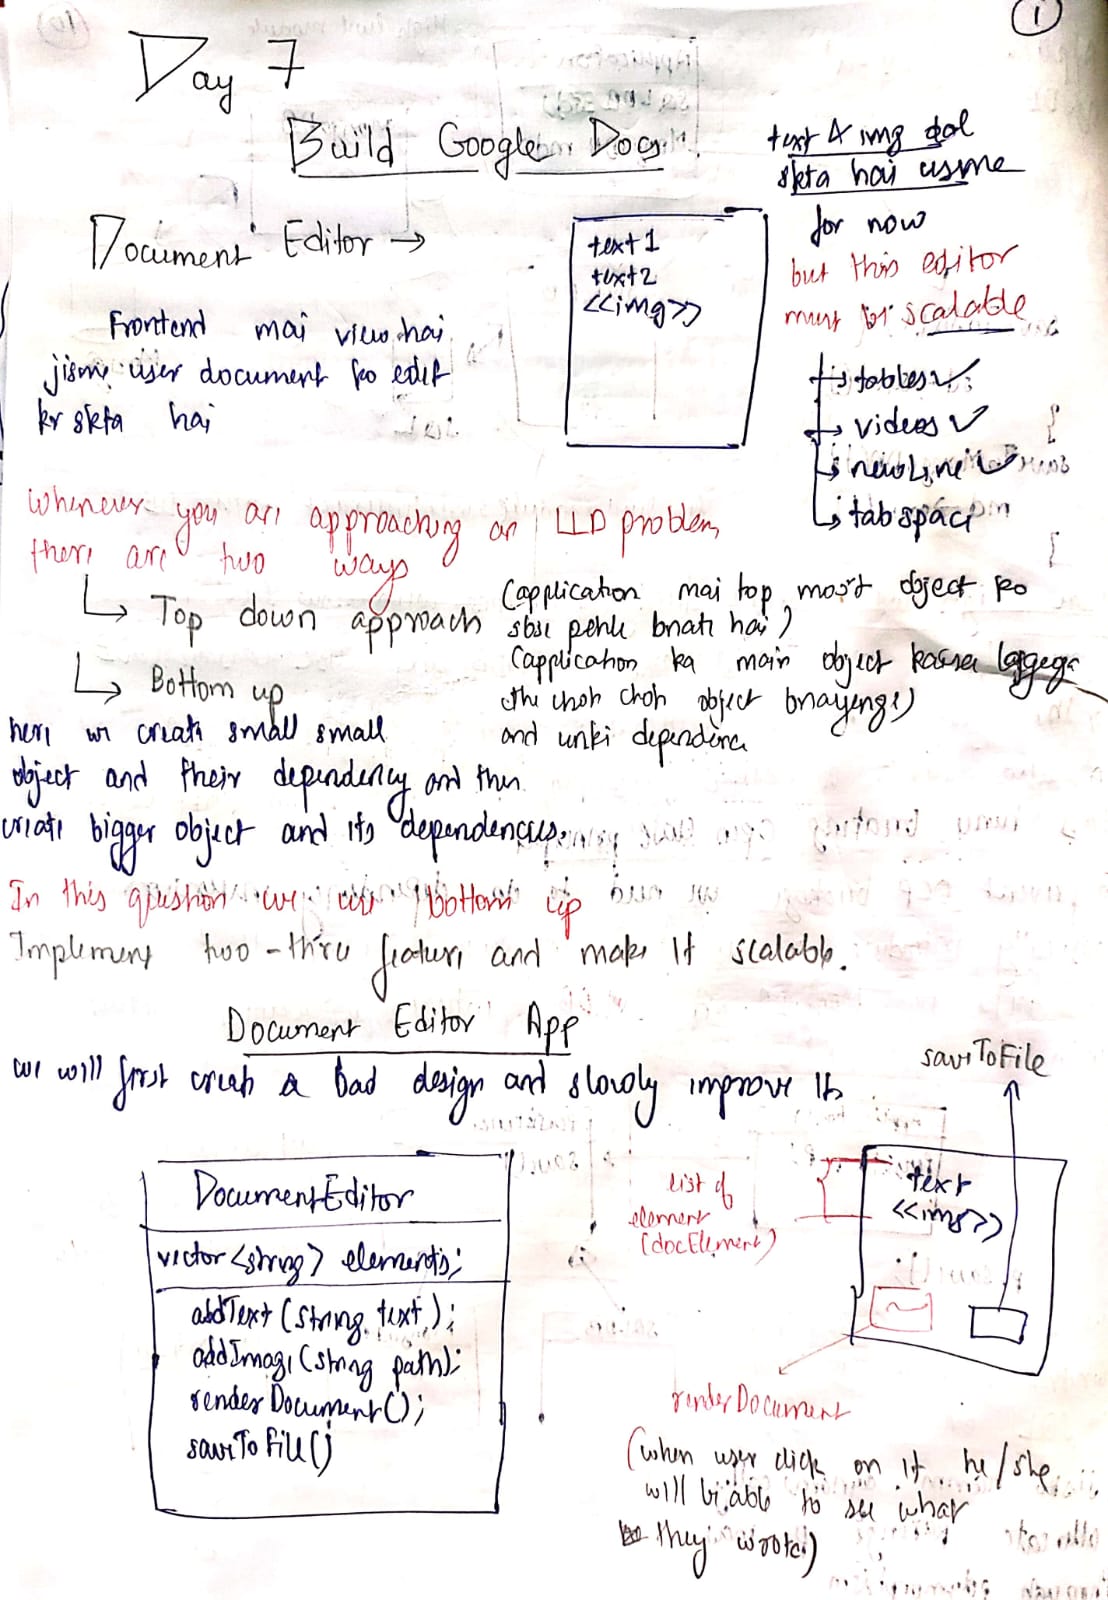 1
Day 7
Build Google Docs
text & img dal
skta hai usme
for now
but this editor
must be scalable
tables ✓
videos ✓
newLine ✓
tab space
Document Editor →
text1
text2
<<img>>
Frontend mai view hai
jisme user document ko edit
kr skta hai
Whenever you are approaching an LLD problem,
there are two ways
Top down approach
(application mai top most object ko
sbse pehle bnate hai)
Bottom up
(application ka main object kaisa
object bnayenge)
and unki
here we create small small
object and their dependency and then
create bigger object and its dependencies.
In this question we bottom up
Implement two-three feature and make it scalable.
Document Editor App
we will first create a bad design and slowly improve it
saveToFile
DocumentEditor
vector<string> elements;
addText(string text);
addImage(string path);
renderDocument();
saveToFile()
list of
element
(docElement)
text
<<img>>
renderDocument
(when user click on it he/she
will be able to see what
they wrote)